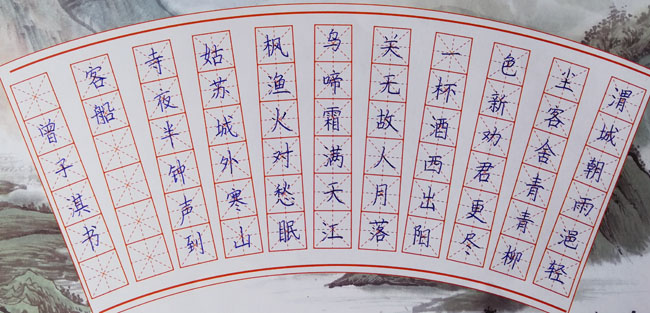 渭城朝雨浥轻
尘客舍青青柳
色新劝君更尽
一杯酒西出阳
关无故人月落
乌啼霜满天江
枫渔火对愁眠
姑苏城外寒山
寺夜半钟声到
客船
曾子淇书